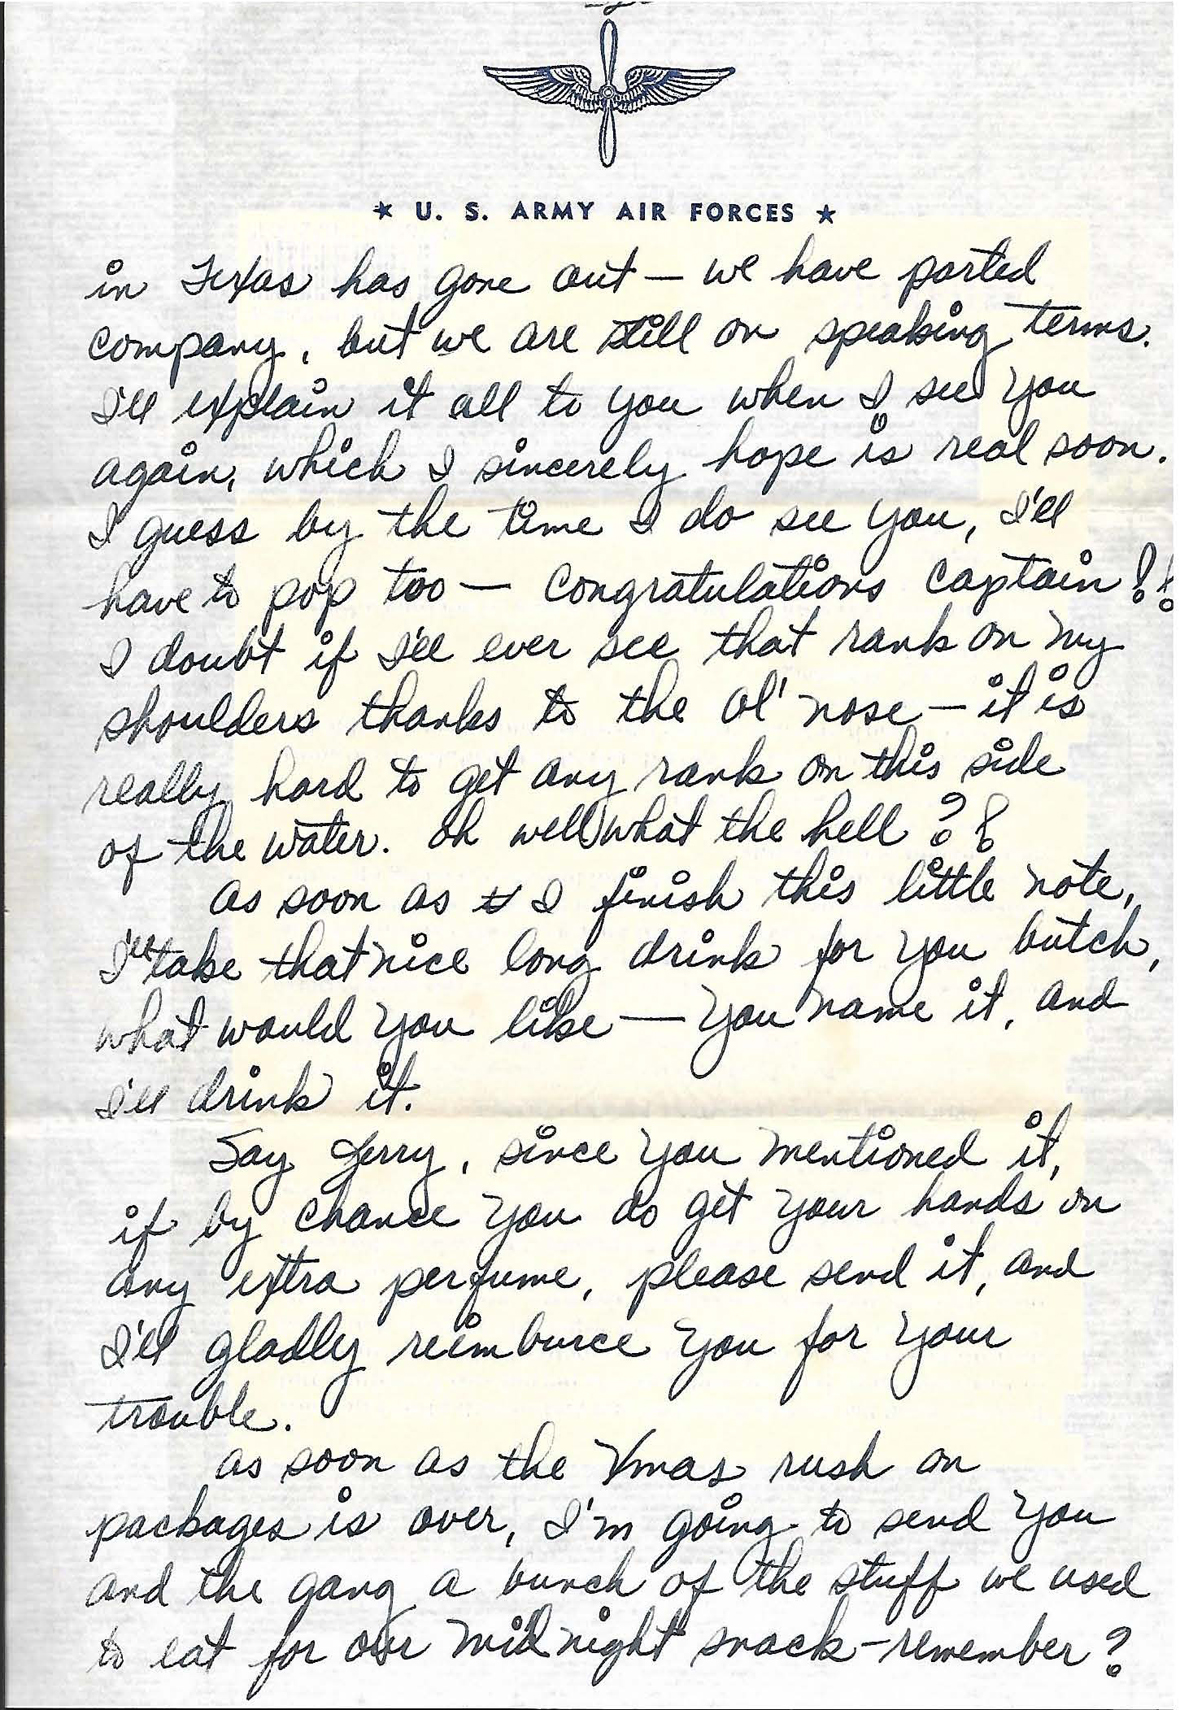 ★ U. S. ARMY AIR FORCES ★
in Texas has gone out — we have parted
company, but we are still on speaking terms.
I'll explain it all to you when I see you
again, which I sincerely hope is real soon.
I guess by the time I do see you, I'll
have to pop too — Congratulations Captain!!
I doubt if I'll ever see that rank on my
shoulders thanks to the ol' nose — it is
really hard to get any rank on this side
of the water. Oh well what the hell?!
as soon as I finish this little note,
I'll take that nice long drink for you butch,
what would you like — You name it, and
I'll drink it.
Say Jerry, since you mentioned it,
if by chance you do get your hands on
any extra perfume, please send it, and
I'll gladly reimburce you for your
trouble.
as soon as the Xmas rush on
packages is over, I'm going to send you
and the gang a bunch of the stuff we used
to eat for our midnight snack - remember?